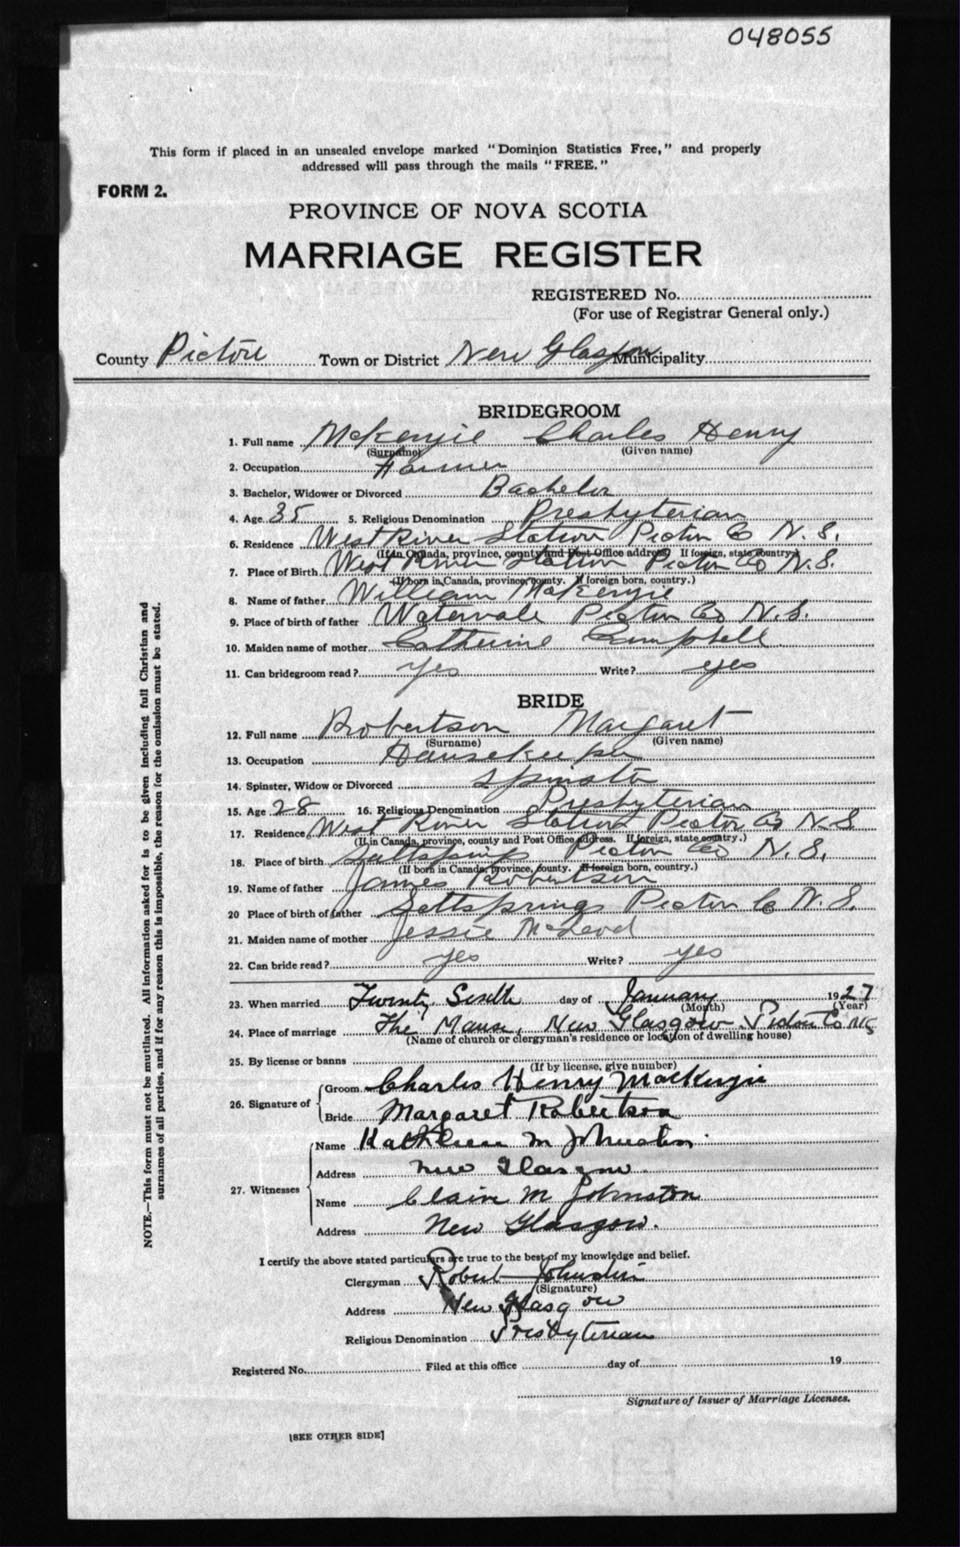 048055
This form if placed in an unsealed envelope marked "Dominion Statistics Free," and properly
addressed will pass through the mails "FREE."
FORM 2.
PROVINCE OF NOVA SCOTIA
MARRIAGE REGISTER
REGISTERED No.
(For use of Registrar General only.)
County Pictou Town or District New Glasgow Municipality
BRIDEGROOM
1. Full name McKenzie Charles Henry
(Surname) (Given name)
2. Occupation Farmer
3. Bachelor, Widower or Divorced Bachelor
4. Age 35 5. Religious Denomination Presbyterian
6. Residence West River Station Pictou Co N.S.
(If in Canada, province, county and Post Office address. If foreign, state country.)
7. Place of Birth West River Station Pictou Co N.S.
(If born in Canada, province, county. If foreign born, country.)
8. Name of father William McKenzie
9. Place of birth of father Watervale Pictou Co N.S.
10. Maiden name of mother Catherine Campbell
11. Can bridegroom read? yes Write? yes
BRIDE
12. Full name Robertson Margaret
(Surname) (Given name)
13. Occupation Housekeeper
14. Spinster, Widow or Divorced Spinster
15. Age 28 16. Religious Denomination Presbyterian
17. Residence West River Station Pictou Co N.S
(If in Canada, province, county and Post Office address. If foreign, state country.)
18. Place of birth Saltsprings Pictou Co N.S.
(If born in Canada, province, county. If foreign born, country.)
19. Name of father James Robertson
20 Place of birth of father Saltsprings Pictou Co N.S.
21. Maiden name of mother Jessie McLeod
22. Can bride read? yes Write? yes
23. When married Twenty Sixth day of January 1927
(Month) (Year)
24. Place of marriage The Manse, New Glasgow Pictou Co N.S
(Name of church or clergyman's residence or location of dwelling house)
25. By license or banns
(If by license, give number)
26. Signature of Groom Charles Henry MacKenzie
Bride Margaret Robertson
27. Witnesses Name Kathleen M Johnston
Address New Glasgow.
Name Claire M Johnston
Address New Glasgow.
I certify the above stated particulars are true to the best of my knowledge and belief.
Clergyman Robert Johnston
(Signature)
Address New Glasgow
Religious Denomination Presbyterian
Registered No. Filed at this office day of 19
Signature of Issuer of Marriage Licenses.
[SEE OTHER SIDE]
NOTE.—This form must not be mutilated. All information asked for is to be given including full Christian and
surnames of all parties, and if for any reason this is impossible, the reason for the omission must be stated.